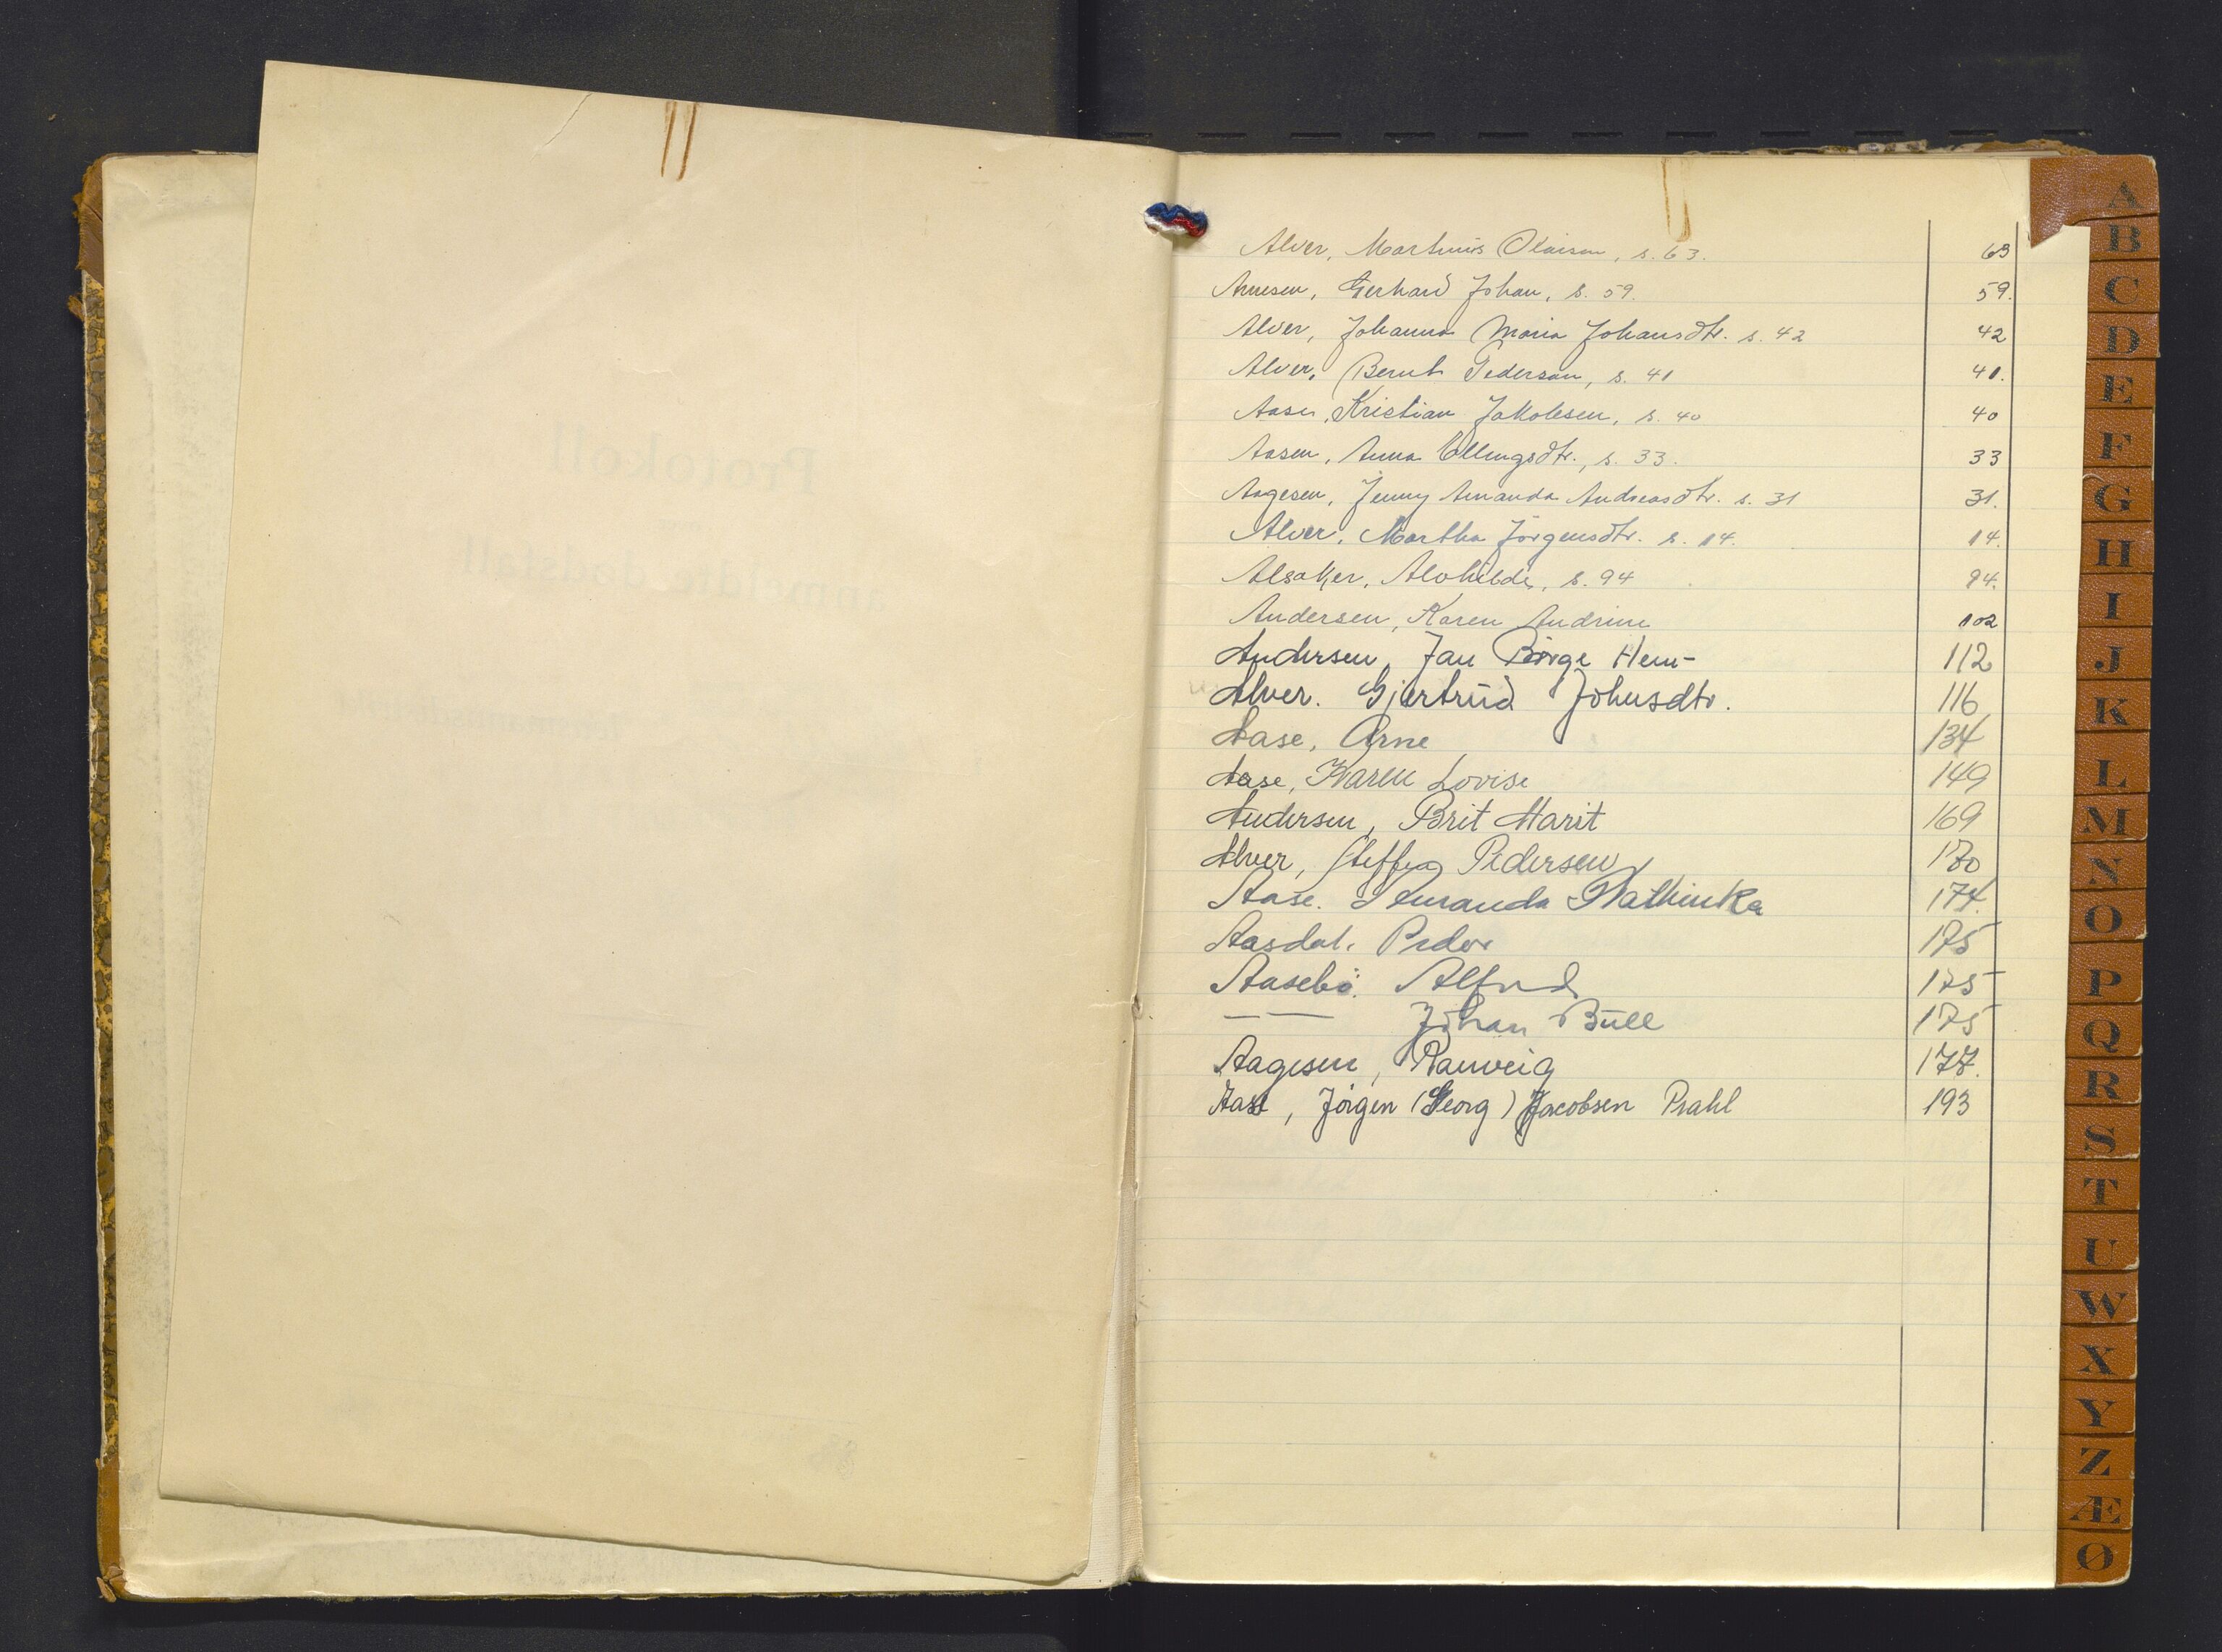 Alver, Martinus Olaisen, s. 63. 63
Arnesen, Gerhard Johan, s. 59. 59.
Alver, Johanna Maria Johansdtr. s. 42 42
Alver, Bernt Pedersen, s. 41 41.
Aase, Kristian Jakobsen, s. 40 40
Aasen, Anna Ellingsdtr., s. 33. 33
Aagesen, Jenny Amanda Andreasdtr. s. 31 31.
Alver, Martha Jörgensdtr. s. 14. 14.
Alsaker, Alvhilde, s. 94 94.
Andersen, Karen Andrine 102
Andersen, Jan Börge Hem- 112
Alver. Gjertrud Johnsdtr. 116
Aase, Arne 134
Aase, Karen Lovise 149
Andersen, Brit Marit 169
Alver, Steffen Pedersen 170
Aase. Amanda Kathinka 174.
Aasdal. Peder 175
Aasebö. Alfred 175
— — Johan Bull 175
Aagesen, Ranveig 177.
Aase, Jörgen (Georg) Jacobsen Prahl 193
A
B
C
D
E
F
G
H
I
J
K
L
M
N
O
P
Q
R
S
T
U
W
X
Y
Z
Æ
Ø